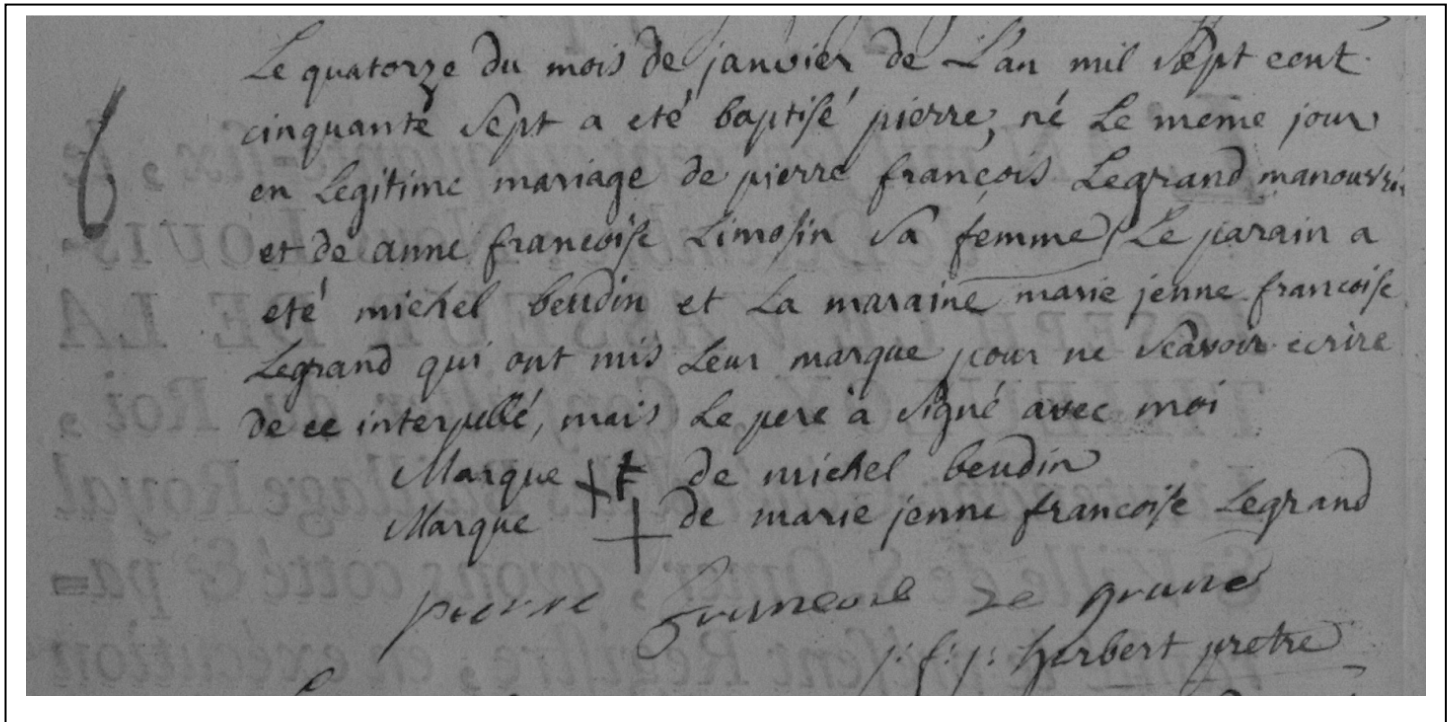 6
Le quatorze du mois de janvier de L'an mil sept cent
cinquante sept a eté baptisé pierre, né Le meme jour
en Legitime mariage de pierre françois Legrand manouvrier
et de anne francoise Limosin sa femme, Le parain a
eté michel beudin et La maraine marie jenne francoise
Legrand qui ont mis Leur marque pour ne scavoir ecrire
de ce interpellé, mais Le pere a signé avec moi
Marque de michel beudin
Marque de marie jenne francoise Legrand
pierre francois Le grand
j. f. j. herbert pretre